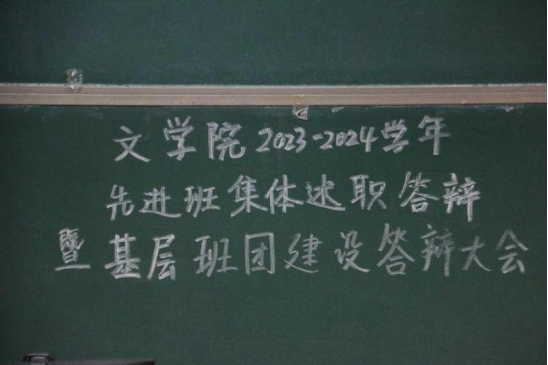 文学院2023-2024学年
先进班集体述职答辩
暨基层班团建设答辩大会